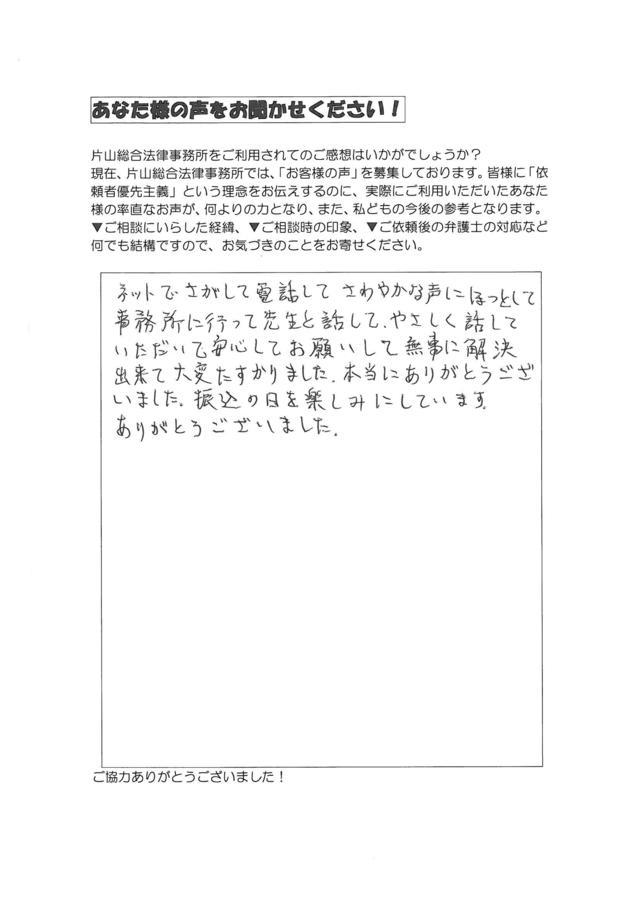 あなた様の声をお聞かせください！
片山総合法律事務所をご利用されてのご感想はいかがでしょうか？
現在、片山総合法律事務所では、「お客様の声」を募集しております。皆様に「依
頼者優先主義」という理念をお伝えするのに、実際にご利用いただいたあなた
様の率直なお声が、何よりの力となり、また、私どもの今後の参考となります。
▼ご相談にいらした経緯、▼ご相談時の印象、▼ご依頼後の弁護士の対応など
何でも結構ですので、お気づきのことをお寄せください。
ネットでさがして電話して さわやかな声にほっとして
事務所に行って先生と話して、やさしく話して
いただいて安心してお願いして無事に解決
出来て大変たすかりました。本当にありがとうござ
いました。振込の日を楽しみにしています。
ありがとうございました。
ご協力ありがとうございました！